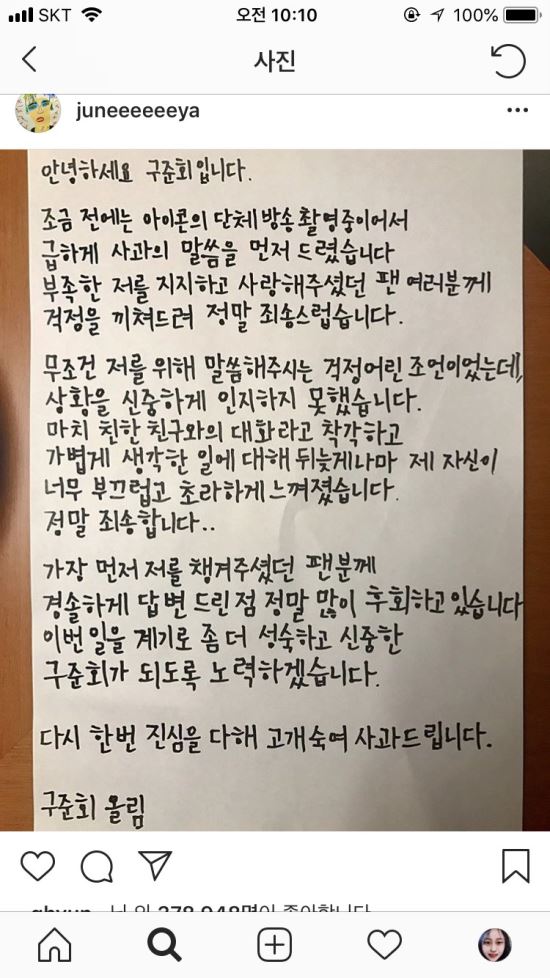 SKT 오전 10:10 100%
사진
juneeeeeeya
안녕하세요 구준회입니다.
조금 전에는 아이콘의 단체 방송 촬영중이어서
급하게 사과의 말씀을 먼저 드렸습니다
부족한 저를 지지하고 사랑해주셨던 팬 여러분께
걱정을 끼쳐드려 정말 죄송스럽습니다.
무조건 저를 위해 말씀해주시는 걱정어린 조언이었는데,
상황을 신중하게 인지하지 못했습니다.
마치 친한 친구와의 대화라고 착각하고
가볍게 생각한 일에 대해 뒤늦게나마 제 자신이
너무 부끄럽고 초라하게 느껴졌습니다.
정말 죄송합니다..
가장 먼저 저를 챙겨주셨던 팬분께
경솔하게 답변 드린점 정말 많이 후회하고 있습니다
이번 일을 계기로 좀 더 성숙하고 신중한
구준회가 되도록 노력하겠습니다.
다시 한번 진심을 다해 고개숙여 사과드립니다.
구준회 올림
님 외 278,948명이 좋아합니다